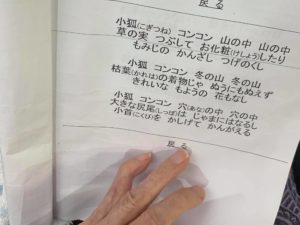 戻る
小狐(こぎつね) コンコン 山の中 山の中
草の実 つぶして お化粧(けしょう)したり
もみじの かんざし つげのくし
小狐 コンコン 冬の山 冬の山
枯葉(かれは)の着物じゃ ぬうにもぬえず
きれいな もようの 花もなし
小狐 コンコン 穴(あな)の中 穴の中
大きな尻尾(しっぽ)は じゃまにはなるし
小首(こくび)を かしげて かんがえる
戻る